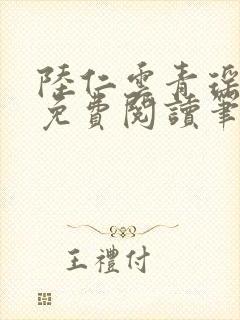 陸仁雲青瑤
免費閱讀筆
王禮付